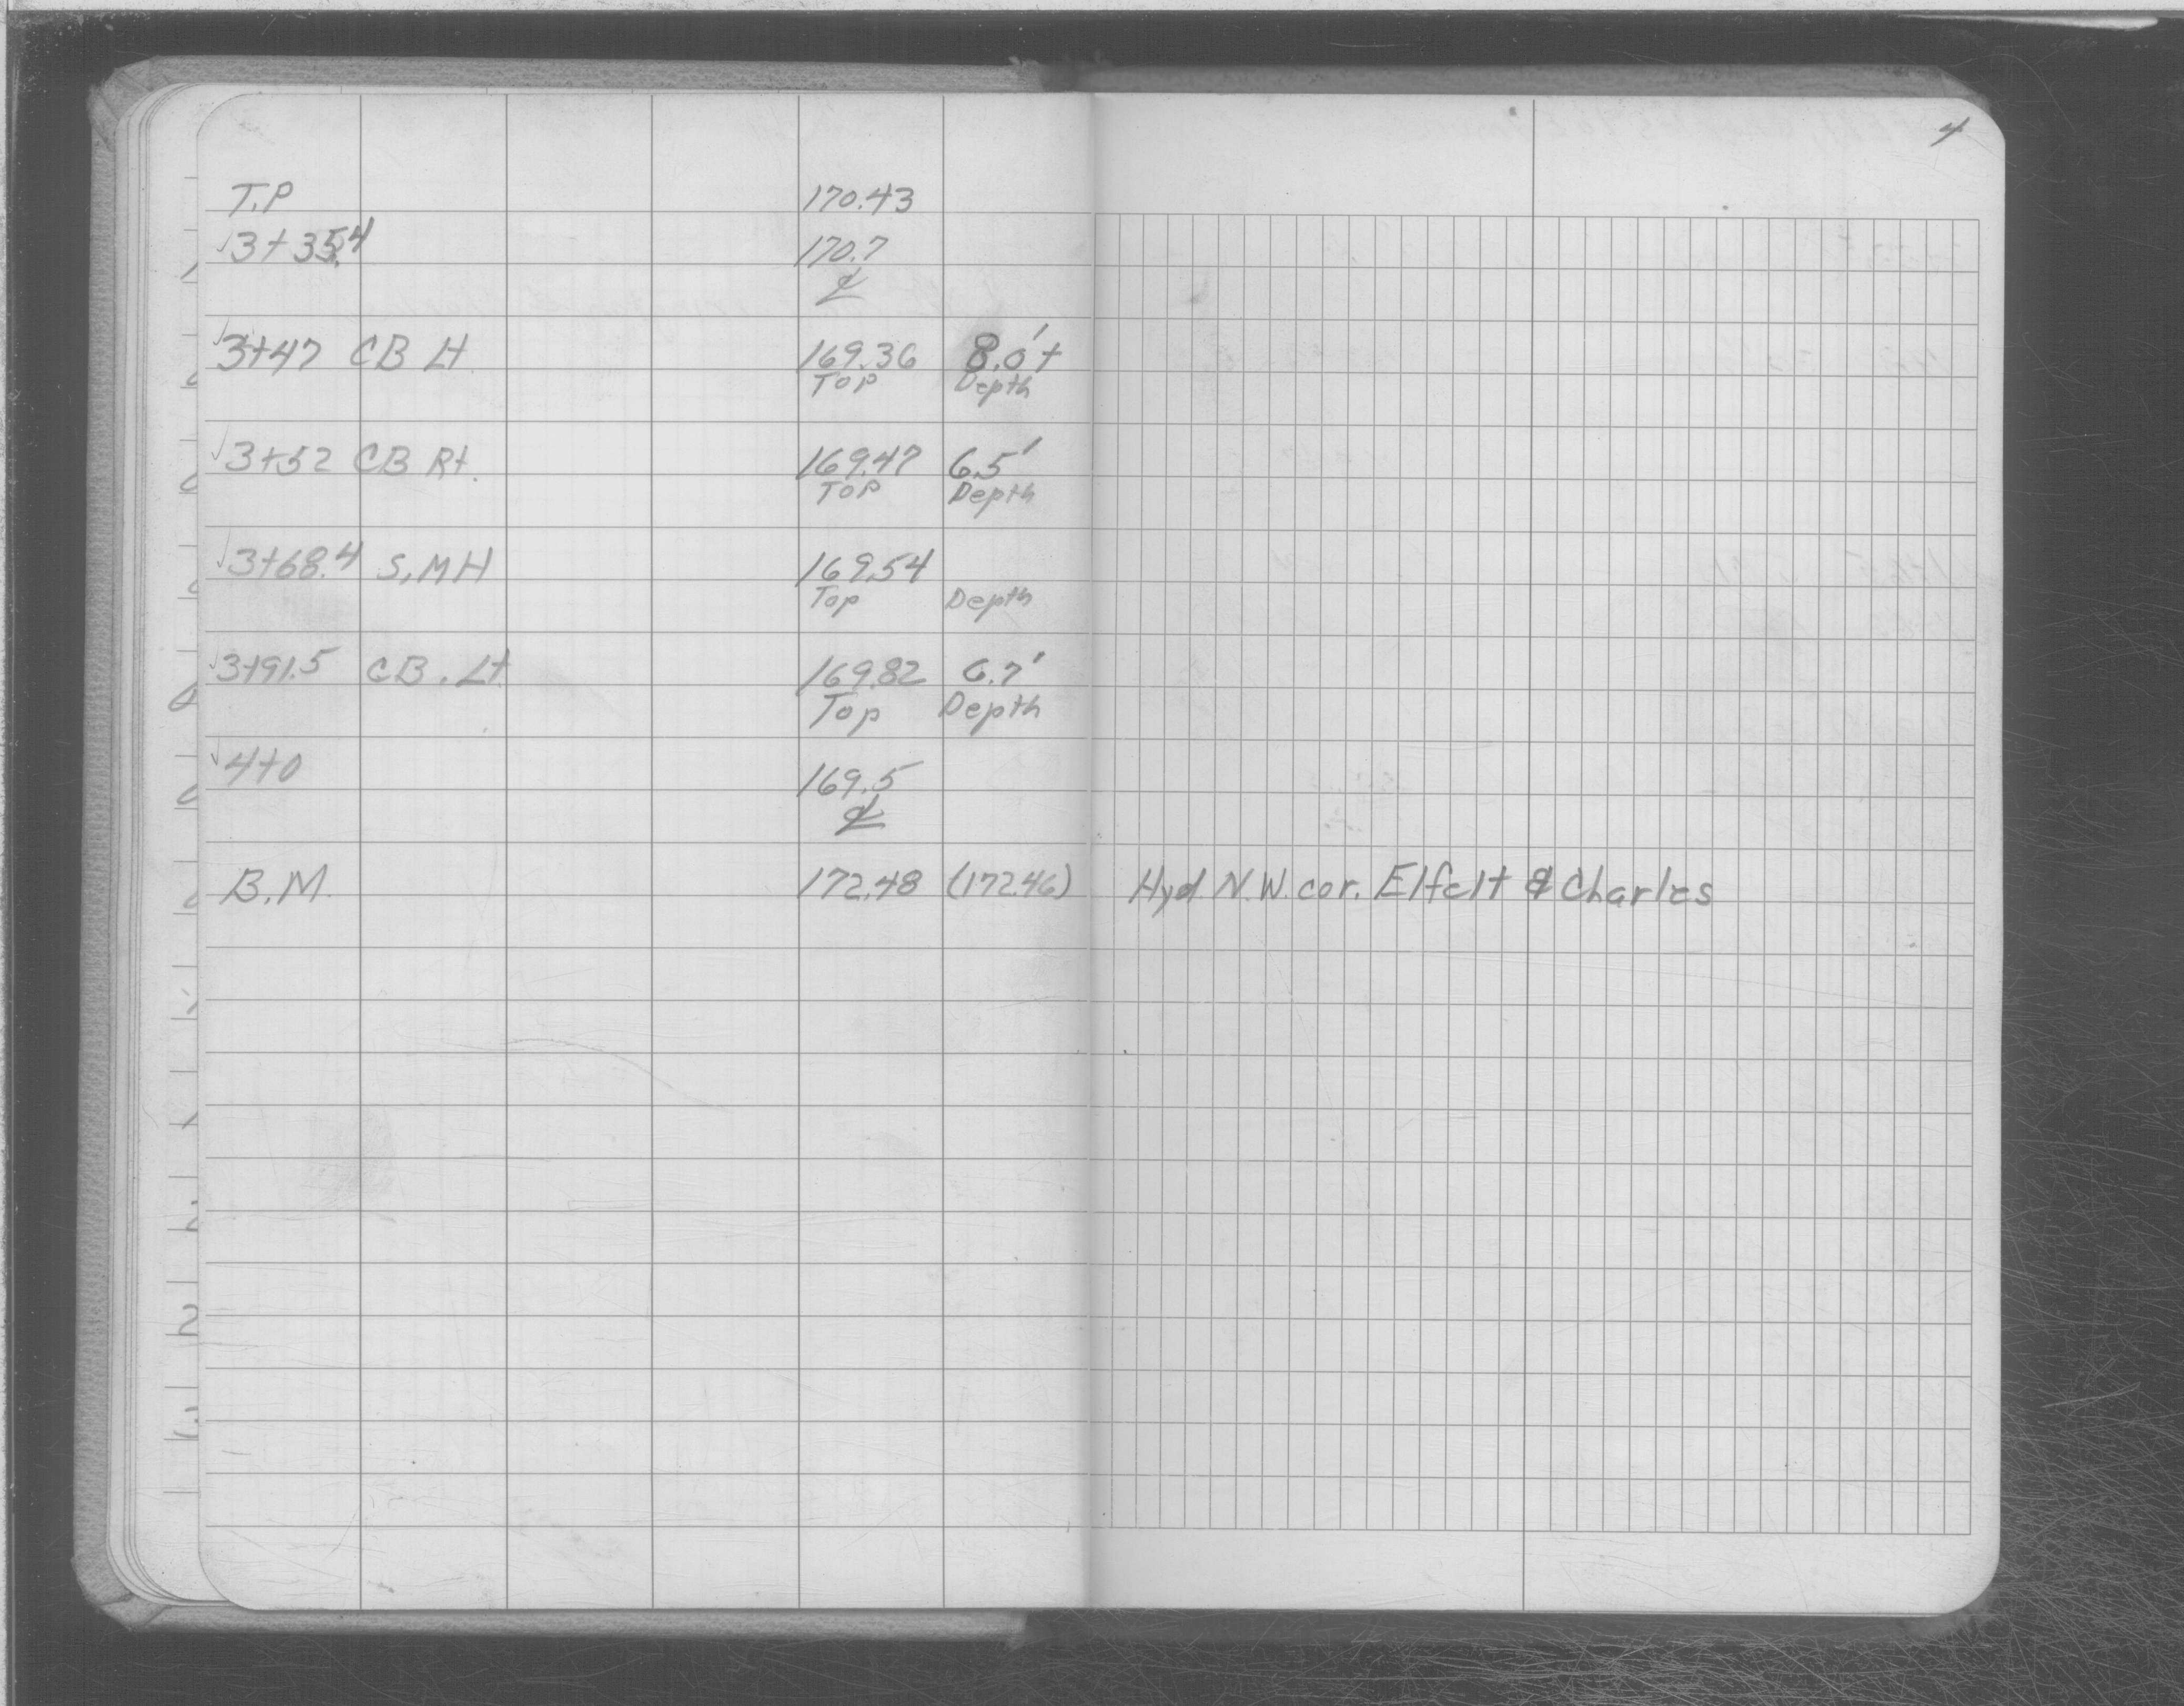 4
T.P 170.43
√3+35.4 170.7
℄
√3+47 CB Lt 169.36 8.0'+
Top Depth
√3+52 CB Rt. 169.47 6.5'
Top Depth
√3+68.4 S.MH 169.54
Top Depth
√3+91.5 CB. Lt. 169.82 6.7'
Top Depth
√4+0 169.5
℄
B.M. 172.48 (172.46) Hyd. N.W. cor. Elfelt & Charles